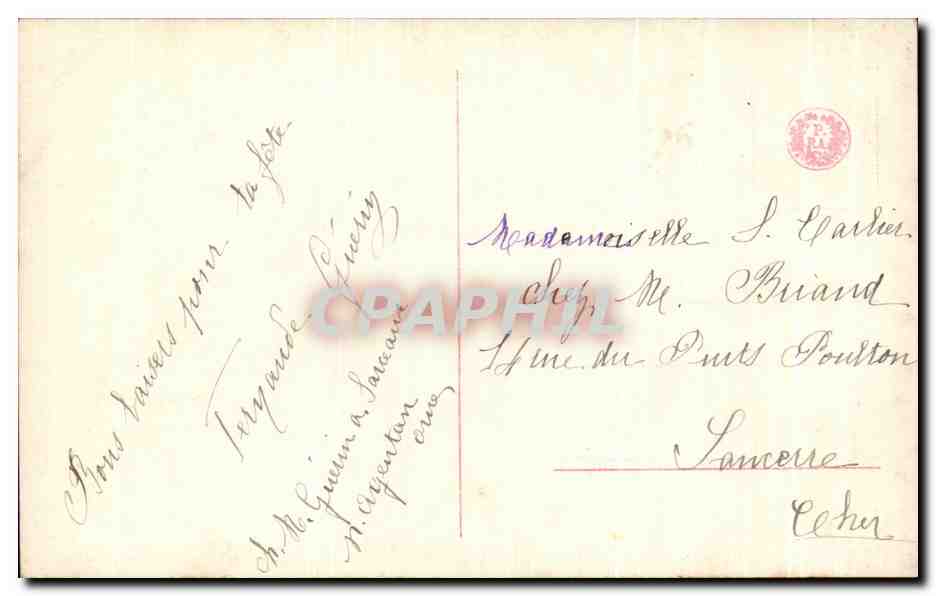 Bons baisers pour ta fête
Fernande Guérin
ch. M. Guérin a. Sarceaux
pr. Argentan
orne
Mademoiselle S. Carlier
Chez M. Briand
14 rue du Puits Poulton
Sancerre
Cher
CPAPHIL